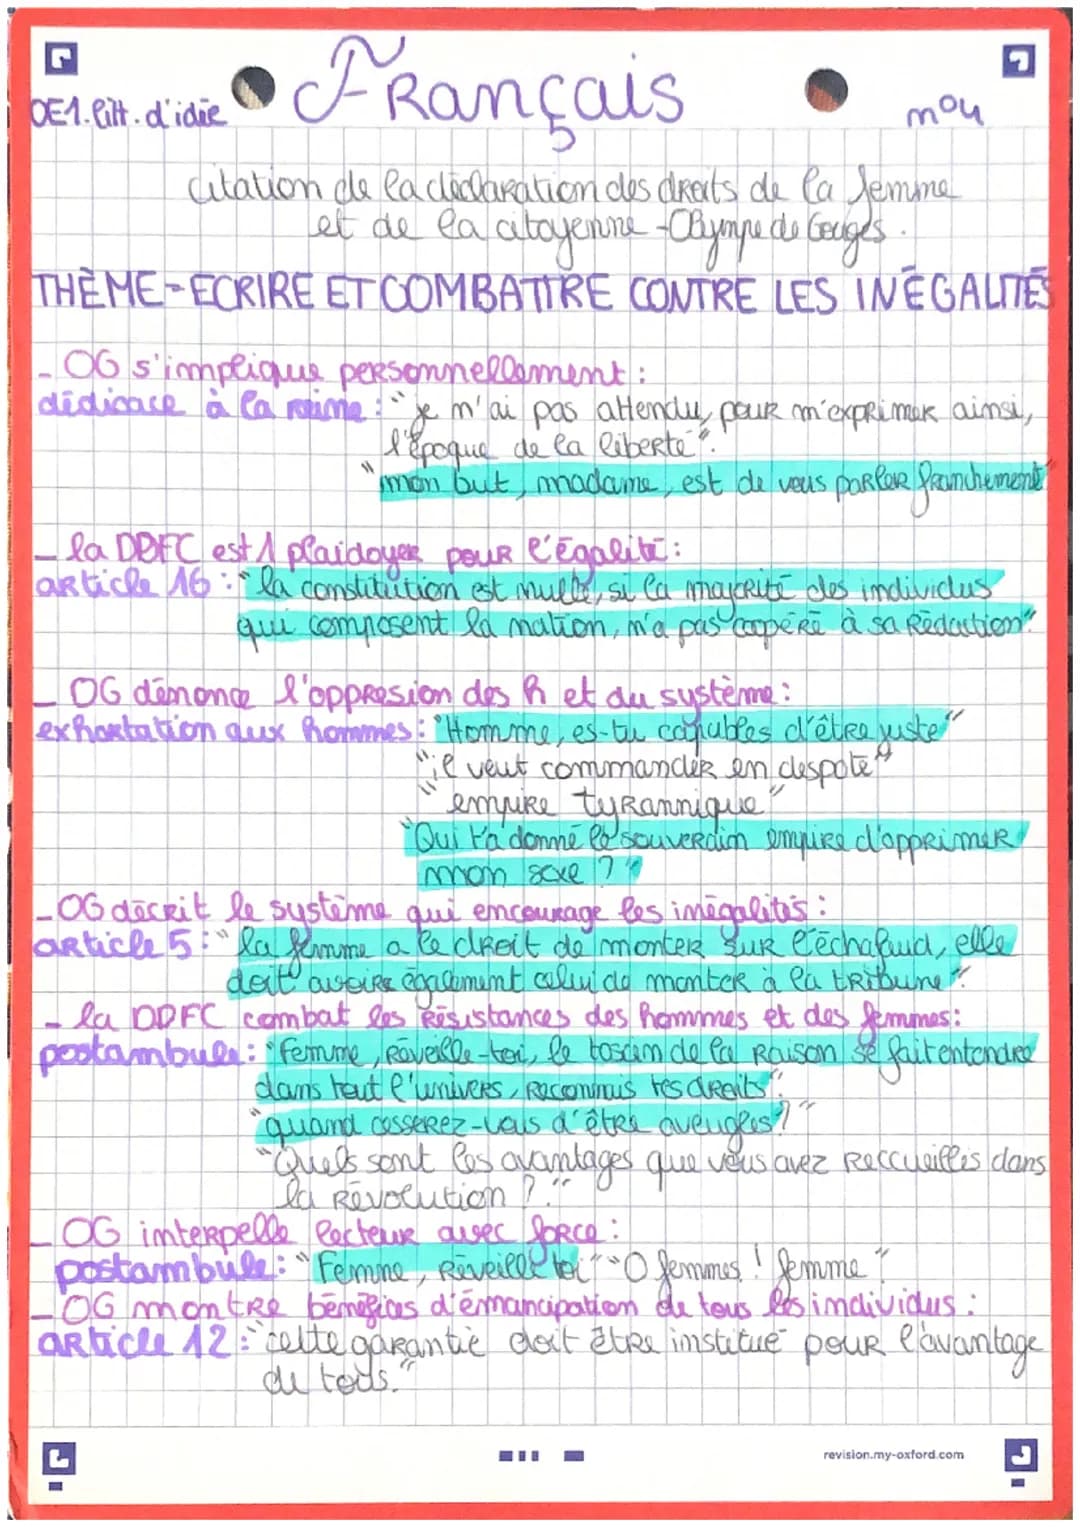 Français
OE1. litt. d'idée
n°4
Citation de la déclaration des droits de la femme
et de la citoyenne - Olympe de Gouges.
THÈME - ECRIRE ET COMBATTRE CONTRE LES INÉGALITÉS
- OG s'implique personnellement :
dédicace à la reine : "je m'ai pas attendu, pour m'exprimer ainsi,
l'époque de la liberté".
"mon but, madame, est de vous parler franchement"
- la DDFC est 1 plaidoyer pour l'égalité :
article 16 : "la constitution est nulle, si la majorité des individus
qui composent la nation, n'a pas coopéré à sa rédaction".
- OG dénonce l'oppresion des h et du système :
exhortation aux hommes : "Homme, es-tu capables d'être juste"
"il veut commander en despote"
"empire tyrannique"
"Qui t'a donné le souverain empire d'opprimer
mon sexe ?"
- OG décrit le système qui encourage les inégalités :
article 5 : "la femme a le droit de monter sur l'échafaud, elle
doit avoire également celui de monter à la tribune".
- la DDFC combat les résistances des hommes et des femmes :
postambule : "Femme, réveille-toi, le toscin de la raison se fait entendre
dans tout l'univers, reconnais tes droits".
"quand cesserez-vous d'être aveugles ?"
"Quels sont les avantages que vous avez reccueillis dans
la révolution ?."
- OG interpelle lecteur avec force :
postambule : "Femme, réveille toi" "O femmes ! femme"
- OG montre bénéfices d'émancipation de tous les individus :
article 12 : "cette garantie doit être institué pour l'avantage
de tous."
revision.my-oxford.com